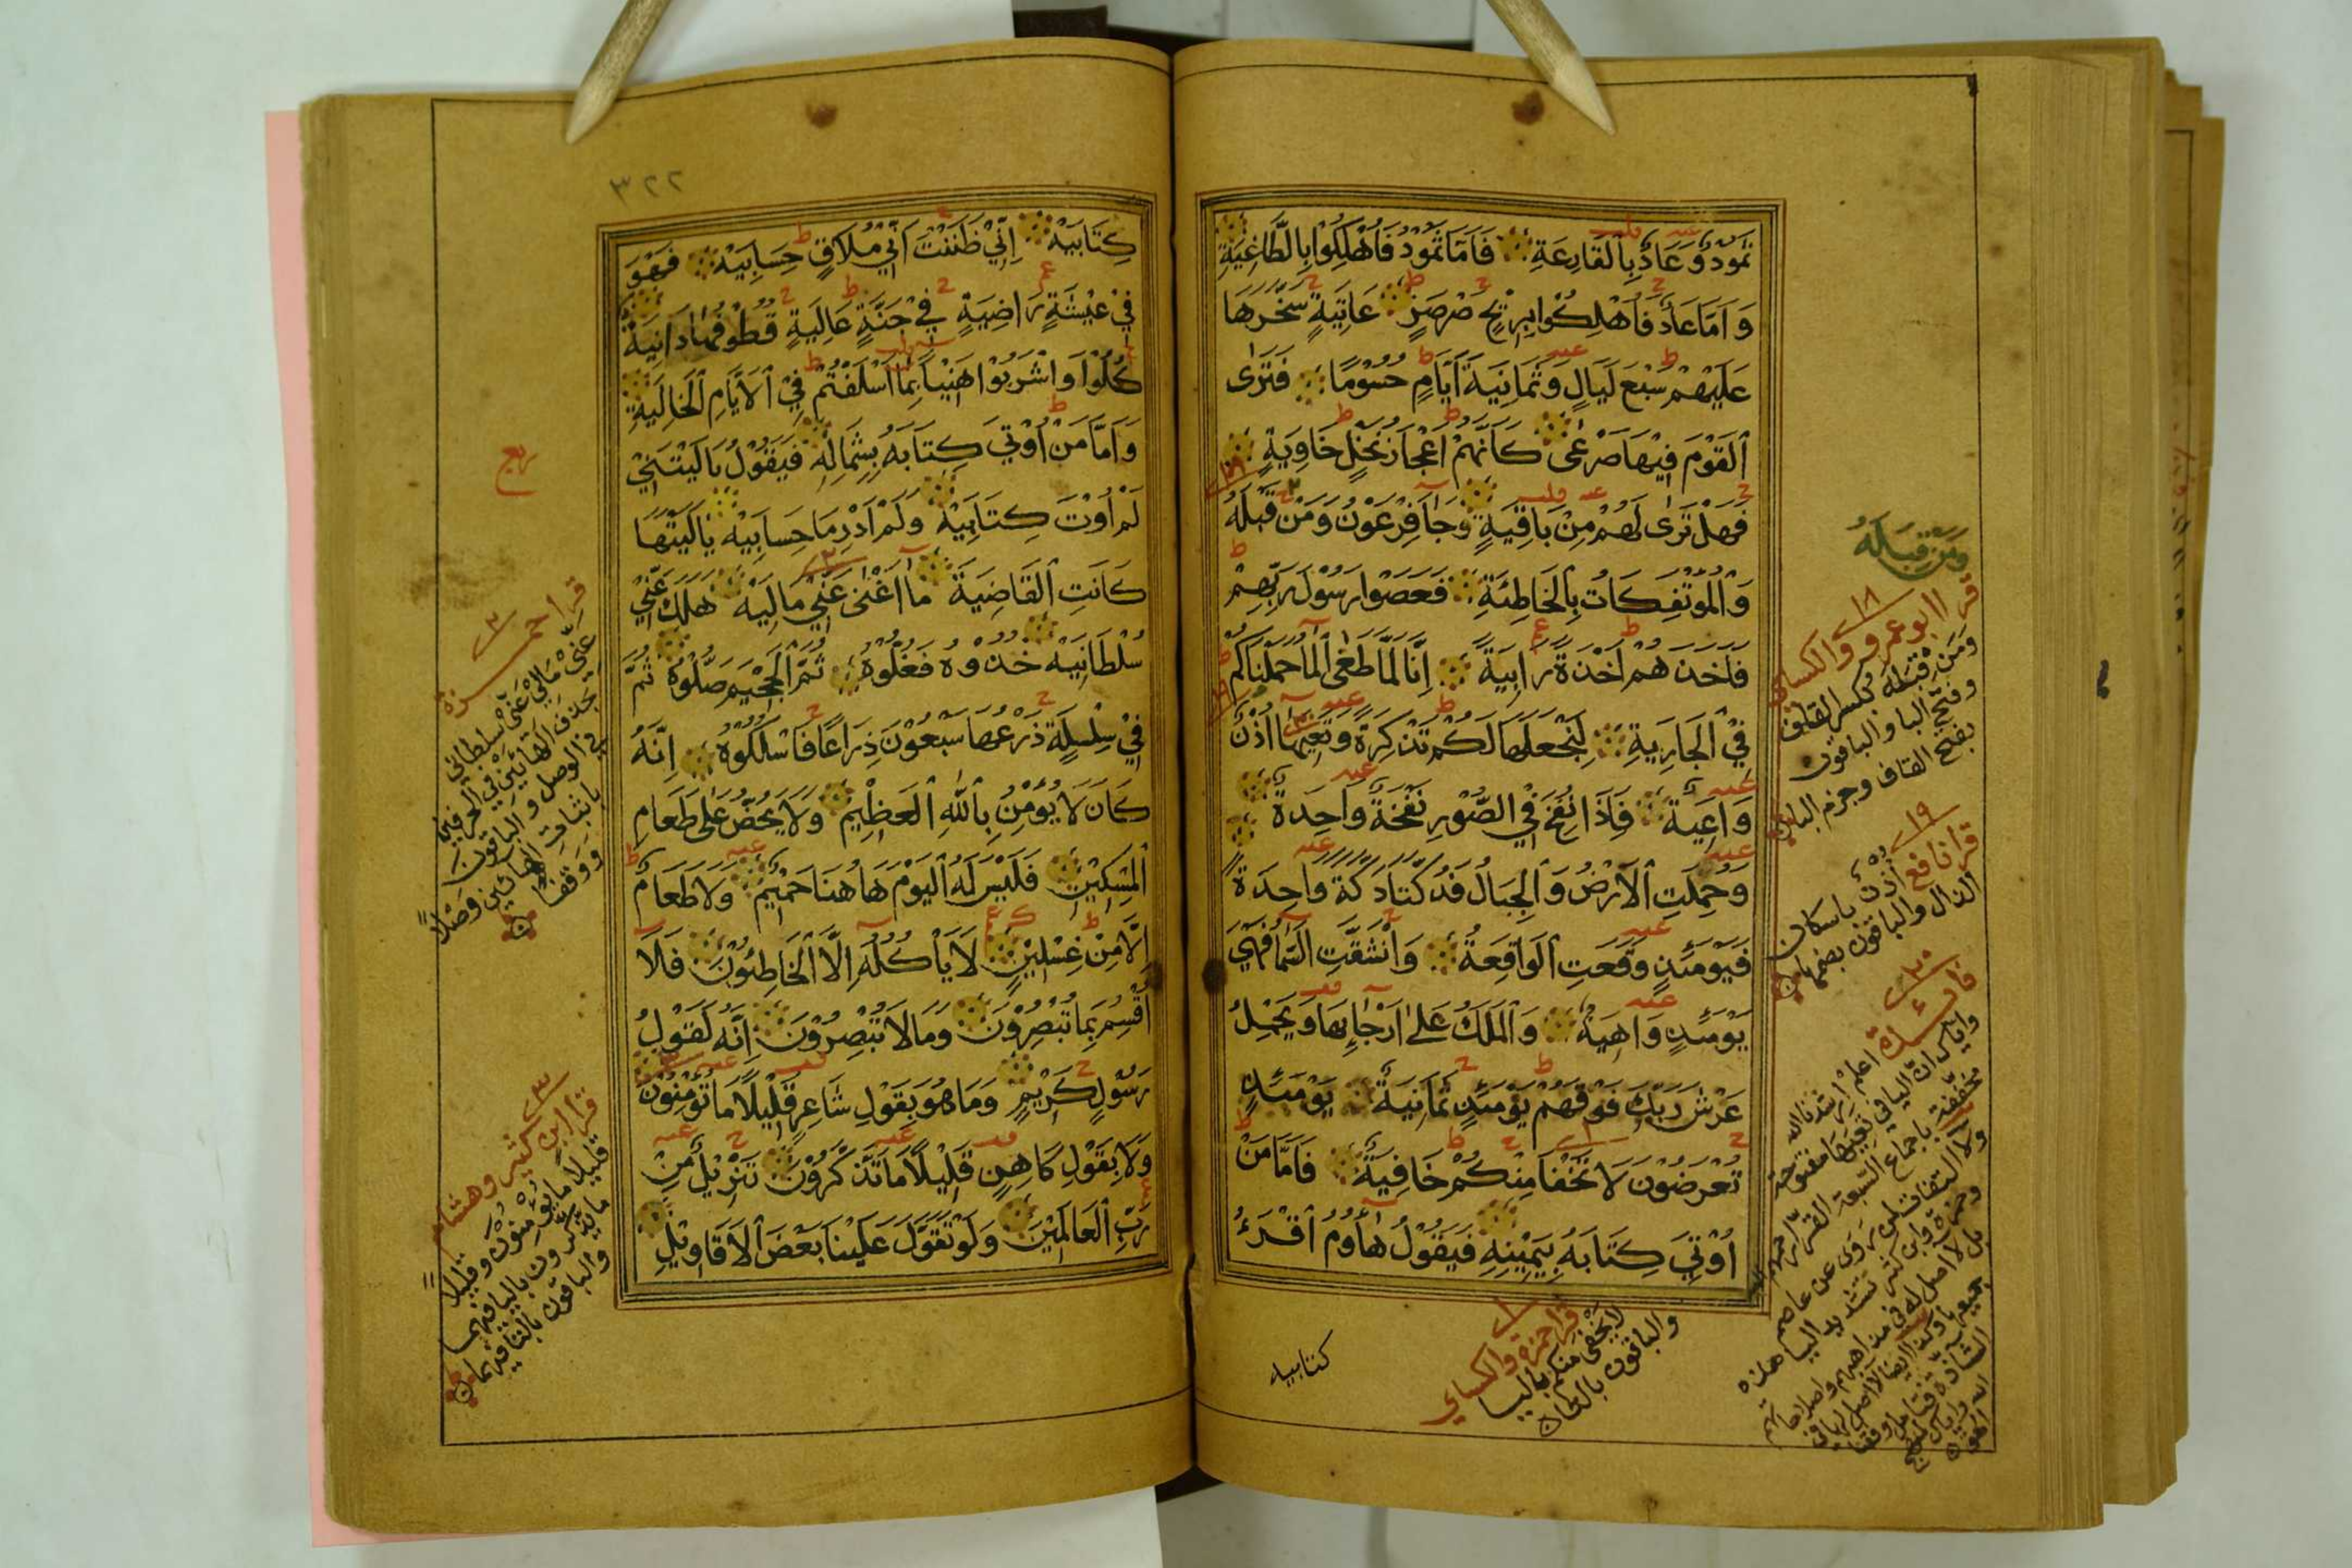 ثَمُودُ وَعَادٌ بِالْقَارِعَةِ فَاَمَّا ثَمُوْدُ فَاُهْلِكُوْا بِالطَّاغِيَةِ
وَاَمَّا عَادٌ فَاُهْلِكُوْا بِرِيْحٍ صَرْصَرٍ عَاتِيَةٍ سَخَّرَهَا
عَلَيْهِمْ سَبْعَ لَيَالٍ وَّثَمَانِيَةَ اَيَّامٍ حُسُوْمًا فَتَرَى
الْقَوْمَ فِيْهَا صَرْعٰى كَاَنَّهُمْ اَعْجَازُ نَخْلٍ خَاوِيَةٍ
فَهَلْ تَرٰى لَهُمْ مِنْ بَاقِيَةٍ وَجَآ فِرْعَوْنُ وَمَنْ قَبْلَهُ
وَالْمُؤْتَفِكَاتُ بِالْخَاطِئَةِ فَعَصَوْا رَسُوْلَ رَبِّهِمْ
فَاَخَذَهُمْ اَخْذَةً رَابِيَةً اِنَّا لَمَّا طَغَى الْمَآ حَمَلْنَاكُمْ
فِي الْجَارِيَةِ لِنَجْعَلَهَا لَكُمْ تَذْكِرَةً وَتَعِيَهَا اُذُنٌ
وَاعِيَةٌ فَاِذَا نُفِخَ فِي الصُّوْرِ نَفْخَةٌ وَاحِدَةٌ
وَحُمِلَتِ الْاَرْضُ وَالْجِبَالُ فَدُكَّتَا دَكَّةً وَاحِدَةً
فَيَوْمَئِذٍ وَقَعَتِ الْوَاقِعَةُ وَانْشَقَّتِ السَّمَآ فَهِيَ
يَوْمَئِذٍ وَاهِيَةٌ وَالْمَلَكُ عَلٰى اَرْجَآئِهَا وَيَحْمِلُ
عَرْشَ رَبِّكَ فَوْقَهُمْ يَوْمَئِذٍ ثَمَانِيَةٌ يَوْمَئِذٍ
تُعْرَضُوْنَ لَا تَخْفَا مِنْكُمْ خَافِيَةٌ فَاَمَّا مَنْ
اُوْتِيَ كِتَابَهُ بِيَمِيْنِهِ فَيَقُوْلُ هَآؤُمُ اقْرَءُ
كتابيه
وَمَنْ قِبَلَهُ
١٨
قرا ابو عمرو والكسائي
وَمَنْ قِبَلَهُ بكسر القاف
وفتح البا والباقون
بفتح القاف وجزم البا
١٩
قرا نافع اُذْنٌ باسكان
الذال والباقون بضمها
٢٠
فائدة
قرا حمزة والكسائي
لا يخفى منكم باليا
والباقون بالتا
٣٢٢
كِتَابِيَهْ اِنِّيْ ظَنَنْتُ اَنِّيْ مُلَاقٍ حِسَابِيَهْ فَهُوَ
فِيْ عِيْشَةٍ رَاضِيَةٍ فِيْ جَنَّةٍ عَالِيَةٍ قُطُوْفُهَا دَانِيَةٌ
كُلُوْا وَاشْرَبُوْا هَنِيْـًٔا بِمَا اَسْلَفْتُمْ فِي الْاَيَّامِ الْخَالِيَةِ
وَاَمَّا مَنْ اُوْتِيَ كِتَابَهُ بِشِمَالِهِ فَيَقُوْلُ يَالَيْتَنِيْ
لَمْ اُوْتَ كِتَابِيَهْ وَلَمْ اَدْرِ مَا حِسَابِيَهْ يَالَيْتَهَا
كَانَتِ الْقَاضِيَةَ مَا اَغْنٰى عَنِّيْ مَالِيَهْ هَلَكَ عَنِّيْ
سُلْطَانِيَهْ خُذُوْهُ فَغُلُّوْهُ ثُمَّ الْجَحِيْمَ صَلُّوْهُ ثُمَّ
فِيْ سِلْسِلَةٍ ذَرْعُهَا سَبْعُوْنَ ذِرَاعًا فَاسْلُكُوْهُ اِنَّهُ
كَانَ لَا يُؤْمِنُ بِاللّٰهِ الْعَظِيْمِ وَلَا يَحُضُّ عَلٰى طَعَامِ
الْمِسْكِيْنِ فَلَيْسَ لَهُ الْيَوْمَ هَاهُنَا حَمِيْمٌ وَلَا طَعَامٌ
اِلَّا مِنْ غِسْلِيْنٍ لَا يَاْكُلُهُ اِلَّا الْخَاطِئُوْنَ فَلَا
اُقْسِمُ بِمَا تُبْصِرُوْنَ وَمَا لَا تُبْصِرُوْنَ اِنَّهُ لَقَوْلُ
رَسُوْلٍ كَرِيْمٍ وَمَا هُوَ بِقَوْلِ شَاعِرٍ قَلِيْلًا مَا تُؤْمِنُوْنَ
وَلَا بِقَوْلِ كَاهِنٍ قَلِيْلًا مَا تَذَكَّرُوْنَ تَنْزِيْلٌ مِنْ
رَبِّ الْعَالَمِيْنَ وَلَوْ تَقَوَّلَ عَلَيْنَا بَعْضَ الْاَقَاوِيْلِ
ربع
قرا حمزة
عني مالي عني سلطاني
بحذف الهائين في الحرفين
في الوصل والباقون
باثبات الهائين وصلاً
ووقفا
قرا ابن كثير وهشام
قليلا ما يؤمنون وقليلا
ما يذّكّرون باليا فيهما
والباقون بالتا فيهما